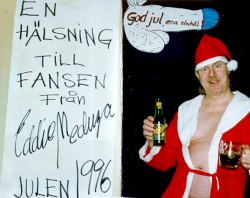 EN
HÄLSNING
TILL
FANSEN
FRÅN
Eddie Meduza
JULEN 1996
God jul, era